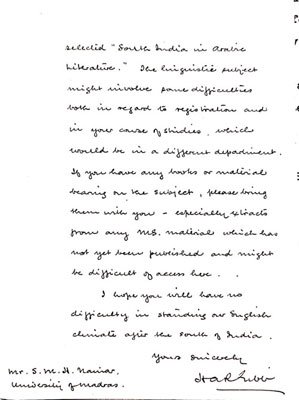 selected "South India in Arabic
Literature." The linguistic subject
might involve some difficulties
both in regard to registration and
in your course of studies, which
would be in a different department.
If you have any books or material
bearing on the subject, please bring
them with you – especially extracts
from any MS. material which has
not yet been published and might
be difficult of access here.
I hope you will have no
difficulty in standing our English
climate after the South of India.
Yours sincerely
H A R Gibb
Mr. S. M. H. Nainar,
University of Madras.